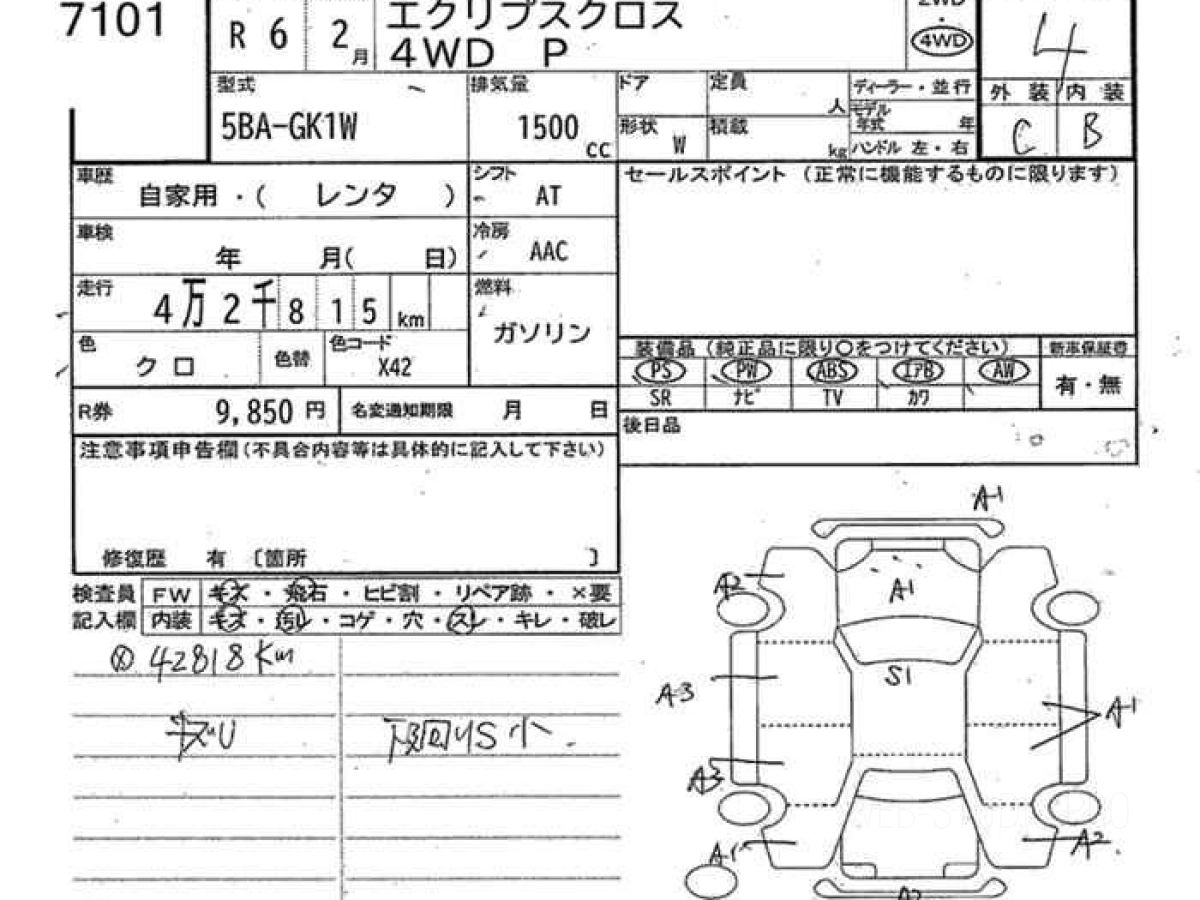 7101
R 6 2月
エクリプスクロス
4WD P
2WD
・
4WD
4
型式
5BA-GK1W
排気量
1500 cc
ドア
定員 人
ディーラー・並行
モデル年式 年
形状 W
積載 kg
ハンドル 左・右
外装 内装
C B
車歴
自家用・( レンタ )
シフト
AT
セールスポイント (正常に機能するものに限ります)
車検
年 月( 日)
冷房
AAC
走行
4万2千815km
燃料
ガソリン
色
クロ
色替
色コード
X42
装備品 (純正品に限り〇をつけてください)
新車保証書
PS PW ABS エアB AW
有・無
SR ナビ TV カワ
R券 9,850円
名変通知期限 月 日
後日品
注意事項申告欄(不具合内容等は具体的に記入して下さい)
修復歴 有 〔箇所 〕
検査員 FW キズ・飛石・ヒビ割・リペア跡・×要
記入欄 内装 キズ・汚レ・コゲ・穴・スレ・キレ・破レ
ⓧ 42818Km
キズU
下回りS小.
A1
A2
A1
A3
S1
A1
A3
A1
A2
A2